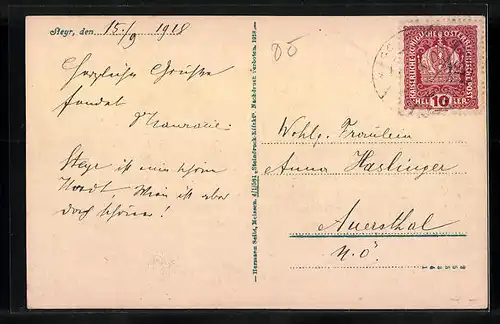 Steyr, den 15./9 1918
Herzliche Grüße
sendet
Steyr ist eine schöne
Stadt Wien ist aber
doch schöner!
Hermann Seibt, Meissen.
Nachdruck verboten. 1918.
KAISERLICHE KÖNIGLICHE ÖSTERREICHISCHE POST
HELLER 10
Wohlg. Fräulein
Anna Haslinger
Auersthal
N.Ö.